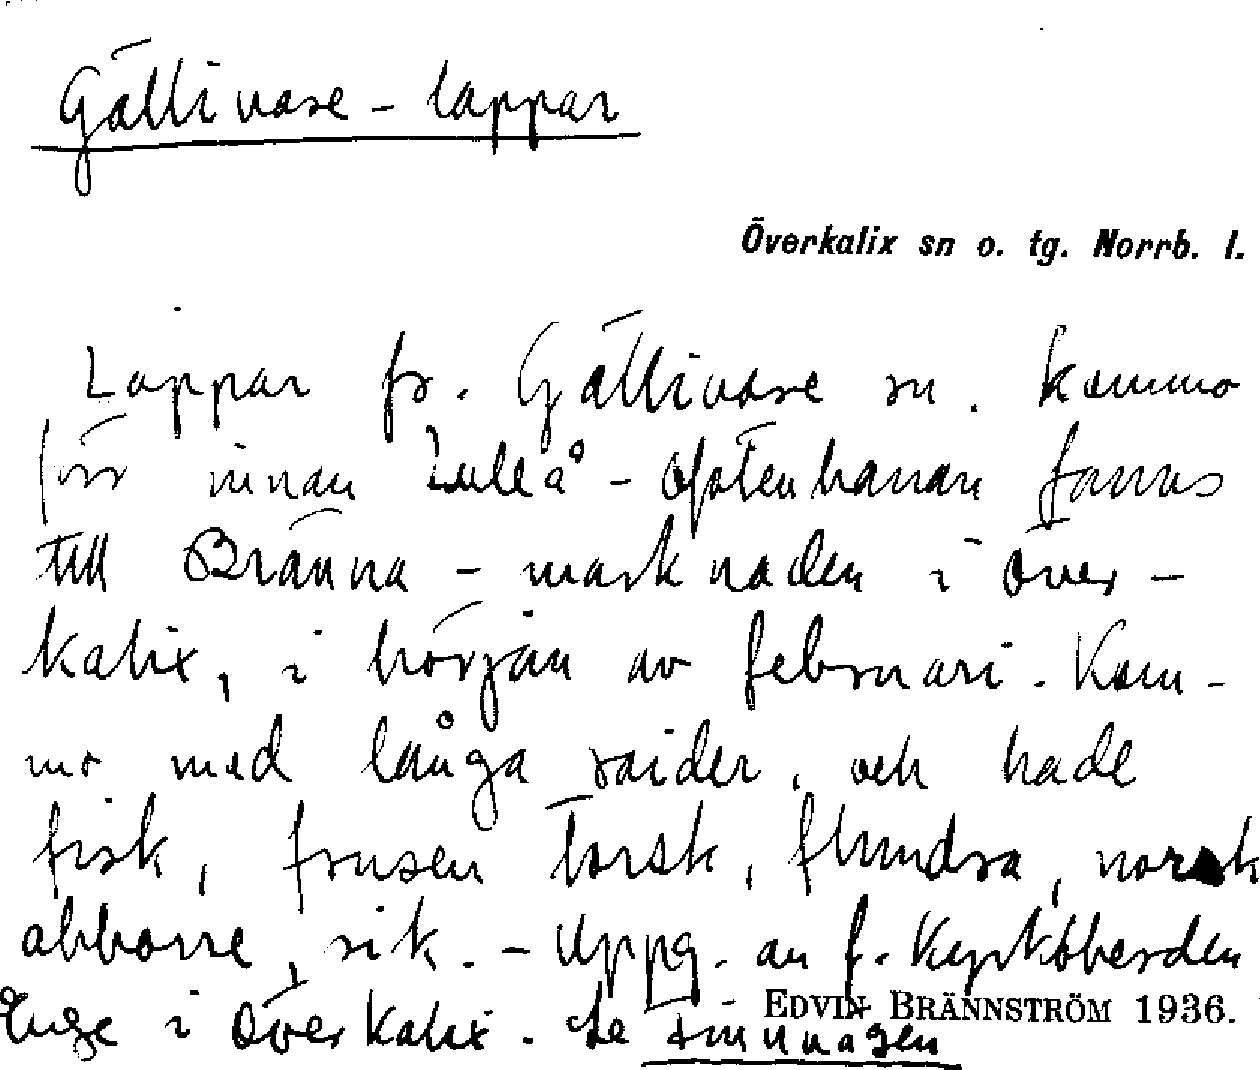 Gällivare-lappar
Överkalix sn o. tg. Norrb. l.
Lappar fr. Gällivare sn. kommo
förr innan Luleå-Ofotenbanan fanns
till Bränna-marknaden i Över-
kalix, i början av februari. Kom-
mo med långa raider, och hade
fisk, frusen torsk, flundra, norsk
abborre, sik. - Uppg. av f. Kyrkoherden
i Överkalix. Se
EDVIN BRÄNNSTRÖM 1936.